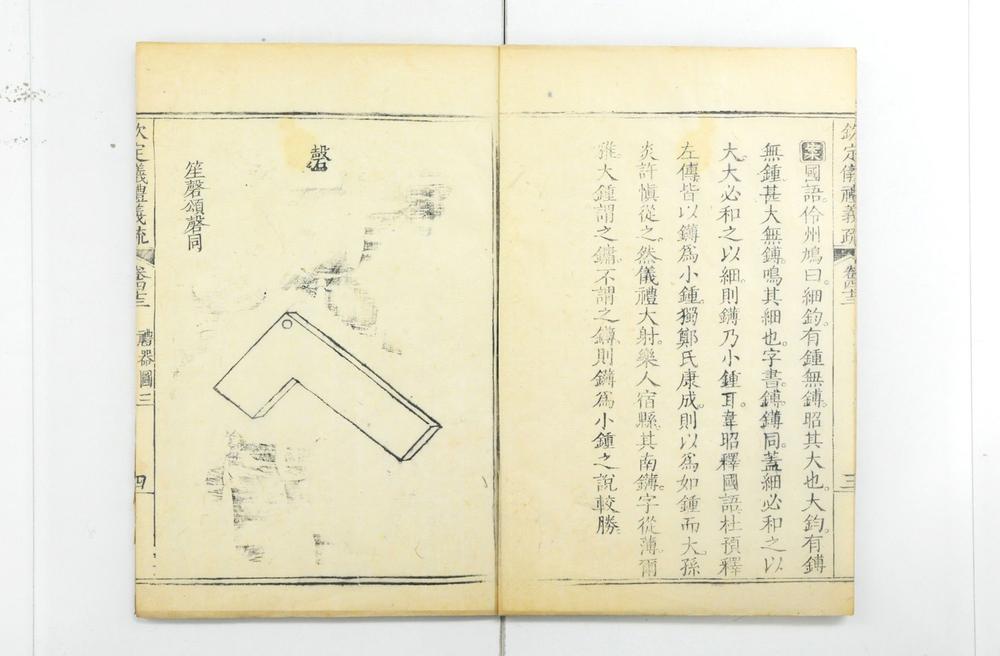 欽定儀禮義疏 卷四十三 三
案國語。伶州鳩曰。細鈞有鍾無鎛。昭其大也。大鈞有鎛
無鍾。甚大無鎛。鳴其細也。字書。鎛鑮同。蓋細必和之以
大。大必和之以細。則鑮乃小鍾耳。韋昭釋國語。杜預釋
左傳。皆以鑮爲小鍾。獨鄭氏康成。則以爲如鍾而大。孫
炎許慎從之。然儀禮大射。樂人宿縣。其南鑮。字從薄。爾
雅。大鍾謂之鏞。不謂之鑮。則鑮爲小鍾之說較勝。
磬
笙磬頌磬同
欽定儀禮義疏 卷四十三 禮器圖三 四